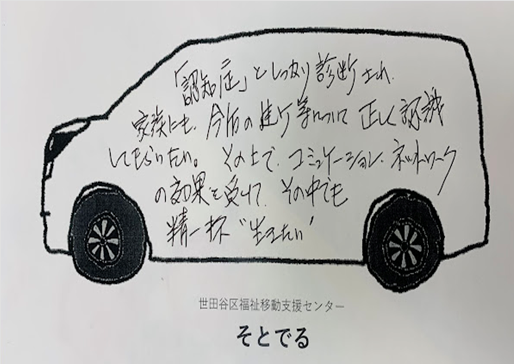 「認知症」としっかり診断され、
家族にも、今后の進行等について正しく認識
してもらいたい。その上で、コミュニケーション、ネットワーク
の効果を受けて、その中でも
精一杯“生きたい”
世田谷区福祉移動支援センター
そとでる